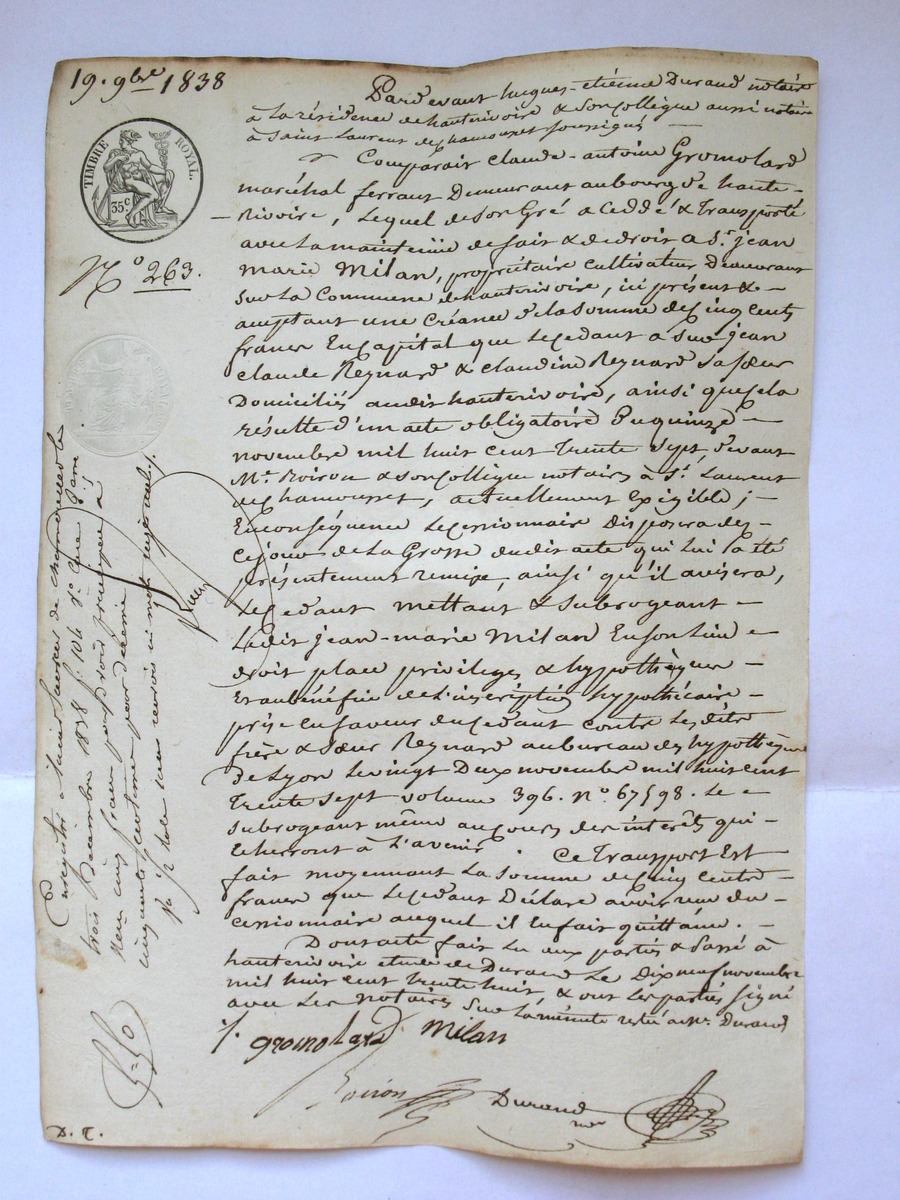 19. 9bre 1838
TIMBRE ROYAL.
35c
No 263.
Pardevant hugues-étienne Durand notaire
à la résidence de hauterivoire & son collègue aussi notaire
à Saint Laurent de chamousset soussignés
Comparait claude-antoine Gromolard
maréchal ferrant Demeurant au bourg de haute-
Rivoire, Lequel de son Gré a Ceddé & Transporté
avec la maintenüe de fait & de droit a Sr. jean
marie Milan, propriétaire cultivateur Demeurant
sur la Commune de hauterivoire, ici présent & -
aceptant une Créance de la somme de cinq cents
francs En capital que le cédant a sur jean
claude Reynard & claudine Reynard sa sœur
Domiciliés audit hauterivoire, ainsi que cela
résulte d'un acte obligatoire Du quinze -
novembre mil huit cent Trente Sept, devant
Me. Roiron & son collègue notaires à St. Laurent
de chamousset, actuellement exigible; -
En conséquence le cessionnaire disposera dès -
ce jour de La Grosse dudit acte qui lui a été
présentement remise, ainsi qu'il avisera,
Le cédant mettant & subrogeant -
Ledit jean-marie Milan En son Lieu -
droit place privilèges & hypothèques -
Et au bénéfice de l'inscription hypothécaire -
prise en faveur du cédant contre les dits
frère & sœur Reynard au bureau des hypothèques
De Lyon le vingt Deux novembre mil huit cent
Trente sept volume 396. No. 67598. Le -
subrogeant même au cours des intérêts qui -
écherront à l'avenir. Ce Transport Est
fait moyennant La Somme de cinq cents -
francs que le cédant Déclare avoir reçu du -
cessionnaire auquel il en fait quittance. -
Dont acte fait lu aux parties & Passé à
hauterivoire étude de Durand Le Dix neuf novembre
mil huit cent trente huit, & ont les parties signé
avec Les notaires Sur La minute restée à Me. Durand
Gromolard Milan
Roiron Durand
nre
Enregistré à Saint Laurent de chamousset le
trois Décembre 1838 f. 104
reçu cinq francs pour droit principal &
cinquante centimes pour décime
5-50
D. T.